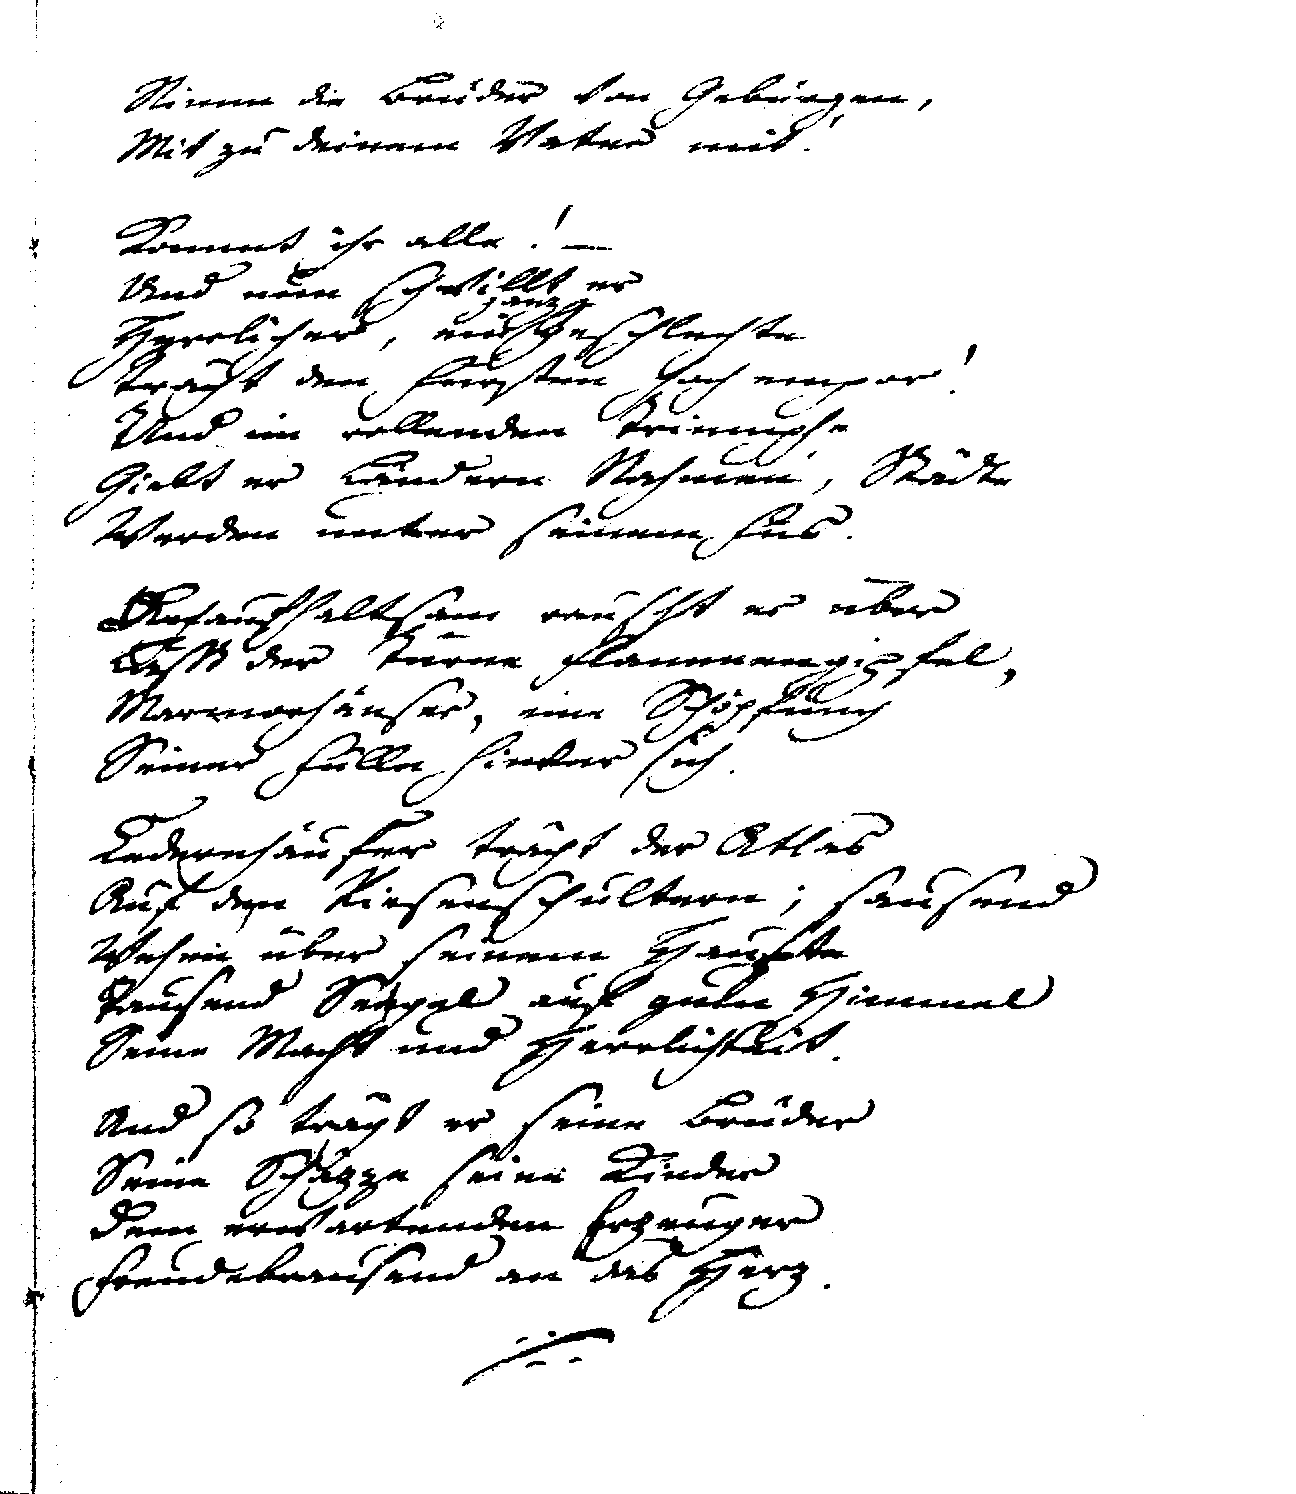 Nimm die Brüder von Gebürgen,
Mit zu deinem Vater mit!
Kommt ihr alle! —
Und nun schwillt er
Herrlicher, ein ganz Geschlechte
Trägt den Fürsten hoch empor!
Und im rollenden Triumphe
Giebt er Ländern Nahmen, Städte
Werden unter seinem Fus.
Unaufhaltsam rauscht er über
Lässt der Türne Flammengipfel,
Marmorhäuser, eine Schöpfung
Seiner Fülle hinter sich.
Cedernhäuser trägt der Atlas
Auf den Riesenschultern; sausend
Wehen über seinem Haupte
Tausend Seegel auf zum Himmel
Seine Macht und Herrlichkeit.
Und so trägt er seine Brüder
Seine Schäzze seine Kinder
Dem erwartenden Erzeuger
Freudebrausend an das Herz.